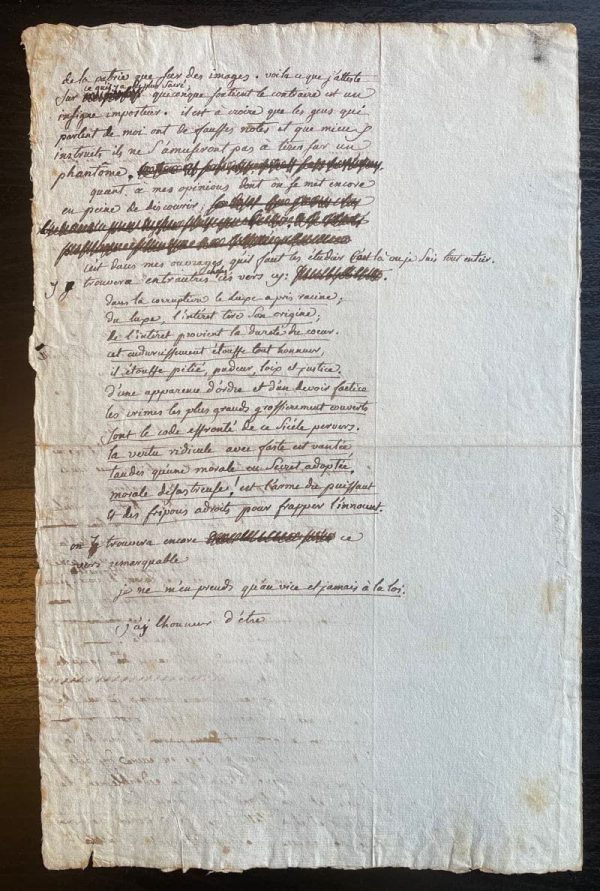 de la patrie que sur des images. voila ce que j'atteste
ce qu'il y a de plus sacré
sur quiconque soutient le contraire est un
insigne imposteur. il est à croire que les gens qui
parlent de moi ont de fausses notes et que mieux
instruits ils ne s'amuseront pas à tirer sur un
phantôme.
quant à mes opinions dont on se met encore
en peine de discourir,
c'est dans mes ouvrages qu'il faut les étudier c'est là ou je suis tout entier.
trouvera entr'autres ces vers cy:
dans la corruption le luxe a pris racine;
du luxe, l'intérêt tire son origine;
de l'intérêt provient la dureté du coeur.
cet endurcissement étouffe tout honneur,
il étouffe pitié, pudeur, loix et justice.
d'une apparence d'ordre et d'un devoir factice
les crimes les plus grands grossierement couverts
sont le code effronté de ce siécle pervers.
la vertu ridicule avec faste est vantée
tandis qu'une morale en secret adoptée,
morale désastreuse! est l'arme du puissant
et des fripons adroits pour frapper l'innocent.
on y trouvera encore ce
vers remarquable
je ne m'en prends qu'au vice et jamais à la loi.
j'ay l'honneur d'être